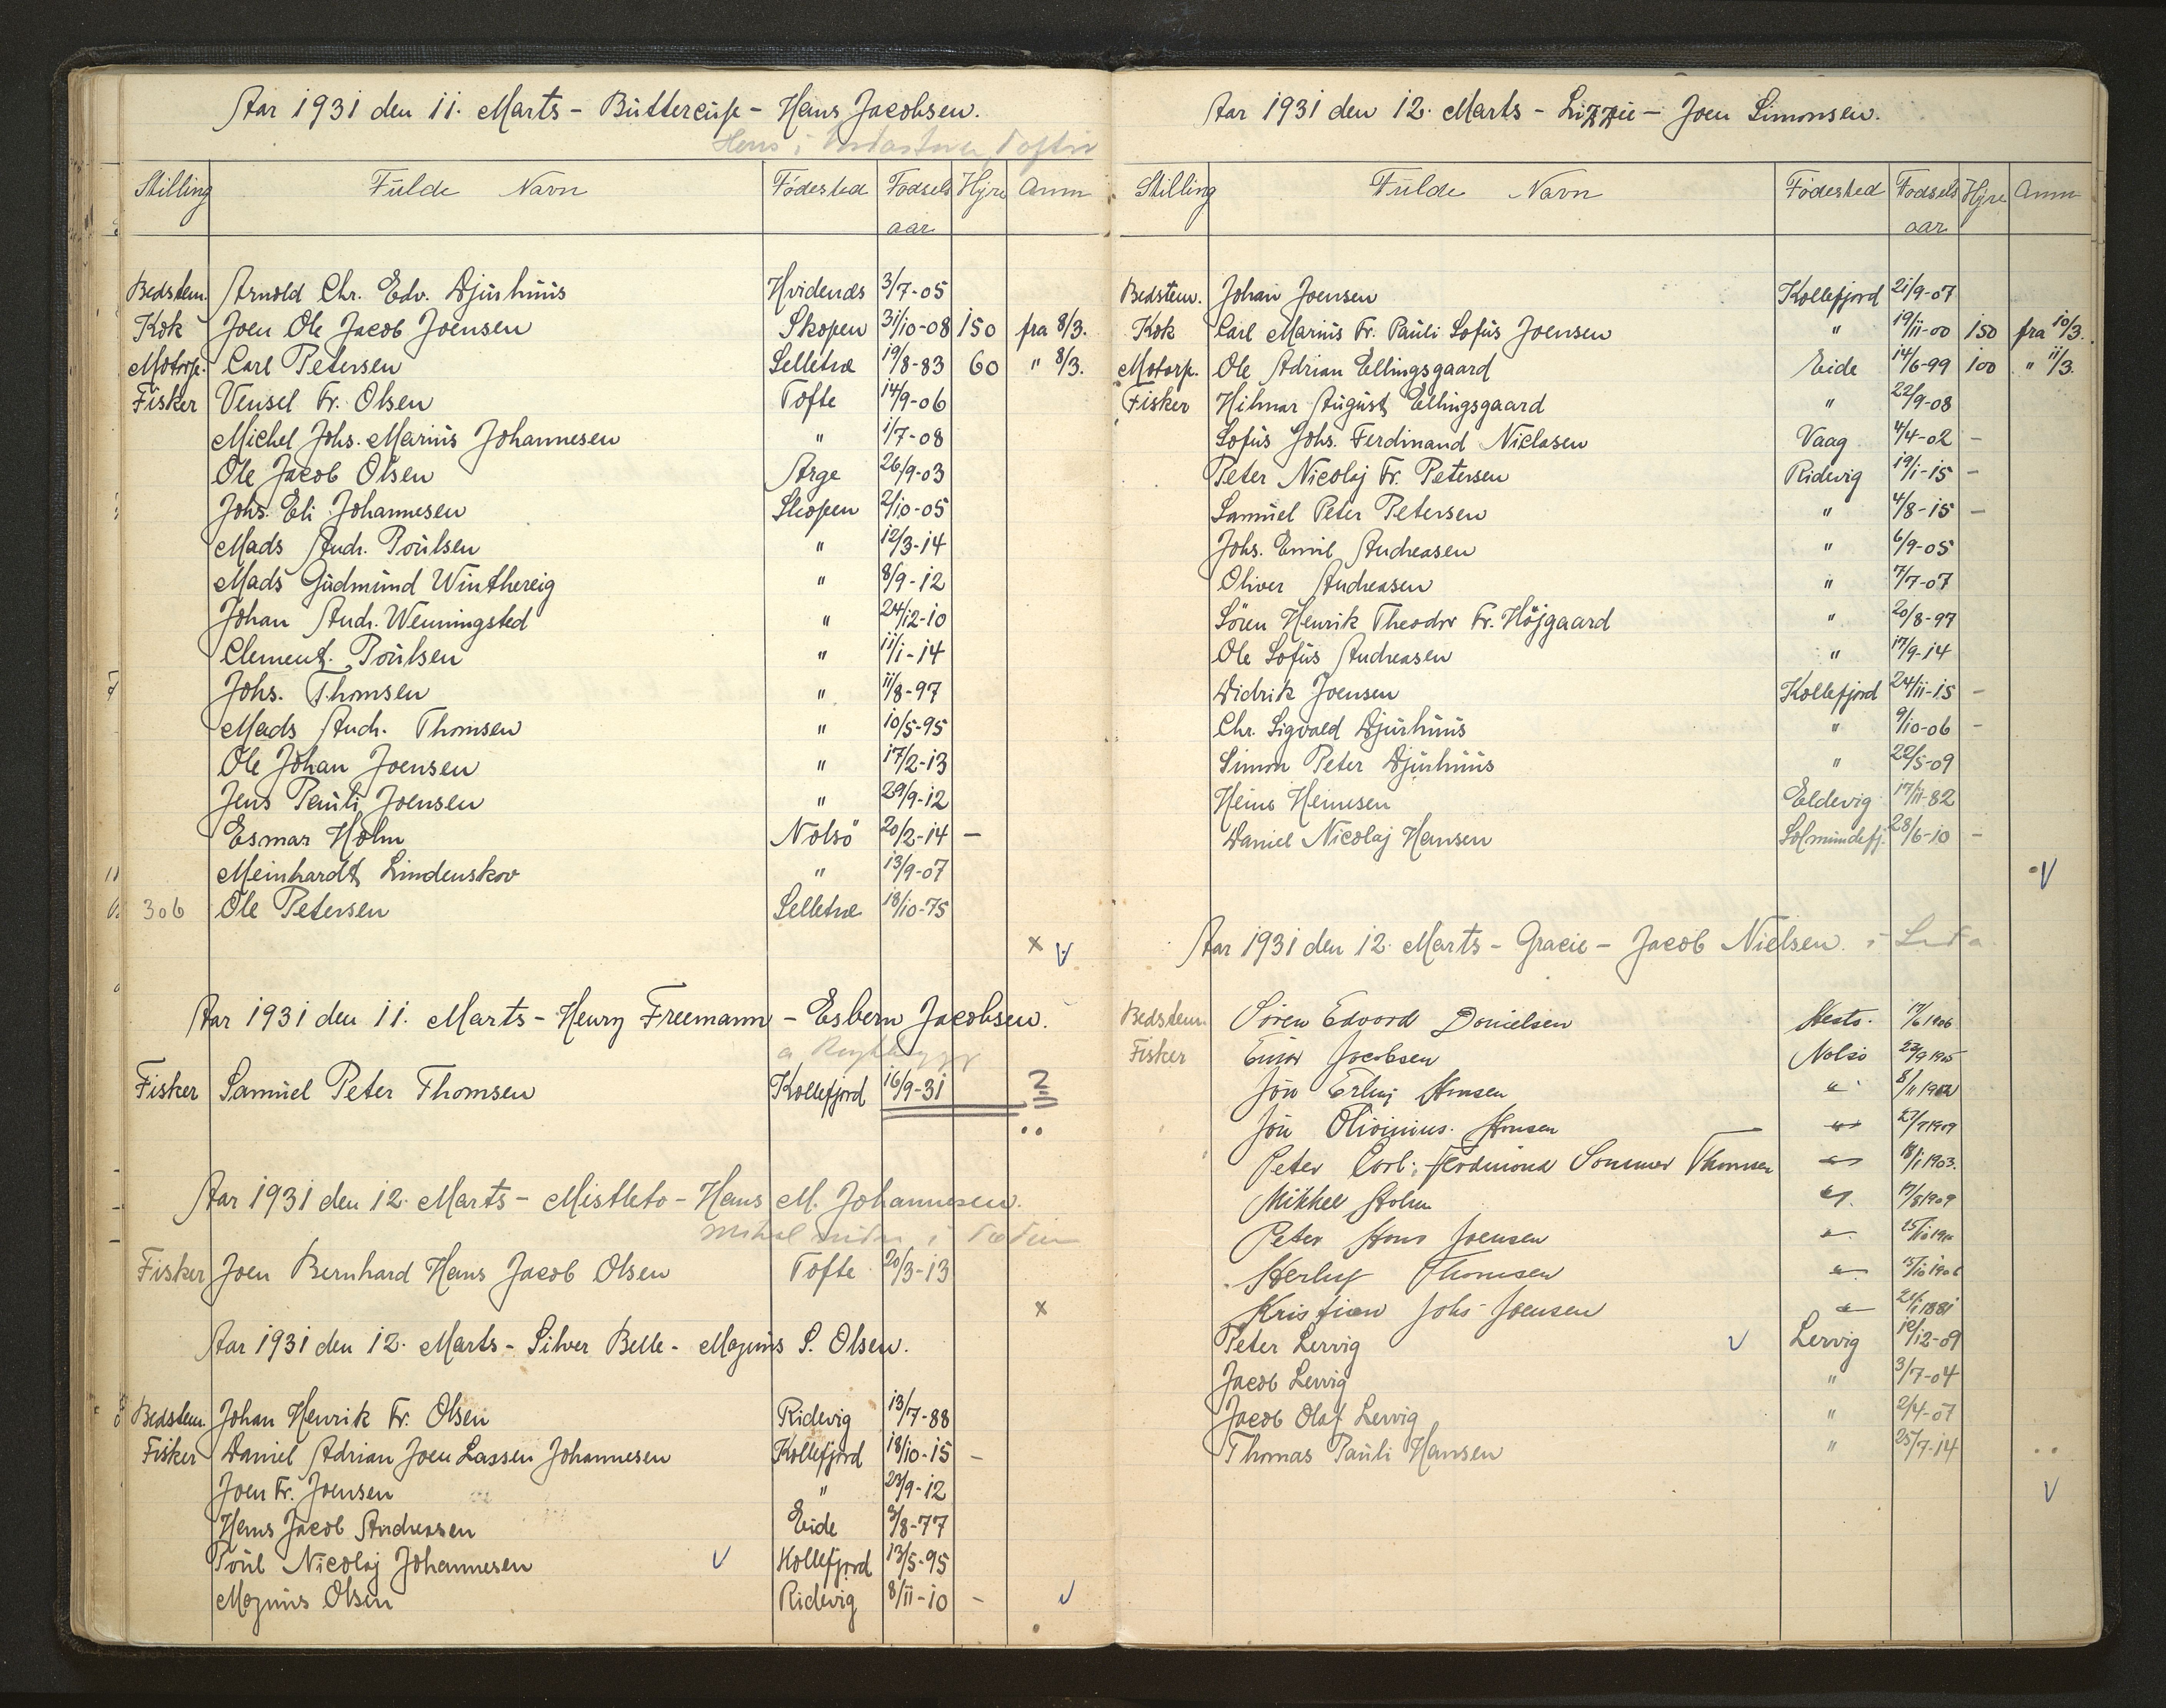 Aar 1931 den 11. Marts - Buttercup - Hans Jacobsen.
Hans i
Stilling Fulde Navn Födested Födsels aar Hyre Anm
Bedstem. Arnold Chr. Edv. Djurhuus Hvidenæs 3/7-05
Kok Joen Ole Jacob Joensen Skopen 31/10-08 150 fra 8/3.
Motorp. Carl Petersen Selletræ 19/8-83 60 " 8/3.
Fisker Vensel Fr. Olsen Tofte 14/9-06
Michel Johs. Marius Johannesen " 1/7-08
Ole Jacob Olsen Arge 26/9-03
Johs. Eli Johannesen Skopen 2/10-05
Mads Andr. Poulsen " 12/3-14
Mads Gudmund Winthereig " 8/9-12
Johan Andr. Wenningsted " 24/12-10
Clement. Poulsen " 11/1-14
Johs. Thomsen " 11/8-97
Mads Andr. Thomsen " 10/5-95
Ole Johan Joensen " 17/2-13
Jens Pauli Joensen " 29/9-12
Esmar Holm Nolsö 20/2-14 -
Meinhardt Lindenskov " 13/9-07
306 Ole Petersen Selletræ 18/10-75
x V
Aar 1931 den 11. Marts - Henry Freemann - Esbern Jacobsen.
a
Fisker Samuel Peter Thomsen Kollefjord 16/9-31 ?
Aar 1931 den 12. Marts - Mistleto - Hans M. Johannesen.
i
Fisker Joen Bernhard Hans Jacob Olsen Tofte 20/3-13
x
Aar 1931 den 12. Marts - Silver Belle - Magnus S. Olsen.
Bedstem. Johan Henrik Fr. Olsen Ridevig 13/7-88
Fisker Daniel Adrian Joen Lassen Johannesen Kollefjord 18/10-15 -
Joen Fr. Joensen " 23/9-12
Hans Jacob Andreasen Eide 3/8-77
Poul Nicolaj Johannesen V Kollefjord 13/5-95
Magnus Olsen Ridevig 8/11-10 - V
Aar 1931 den 12. Marts - Lizzie - Joen Simonsen.
Stilling Fulde Navn Födested Födsels aar Hyre Anm
Bedstem. Johan Joensen Kollefjord 21/9-07
Kok Carl Marius Fr. Pauli Sofus Joensen " 19/11-00 150 fra 10/3.
Motorp. Ole Adrian Ellingsgaard Eide 14/6-99 100 " 11/3.
Fisker Hilmar August Ellingsgaard " 22/9-08
Sofus Johs. Ferdinand Niclasen Vaag 4/4-02 -
Peter Nicolaj Fr. Petersen Ridevig 19/1-15 -
Samuel Peter Petersen " 4/8-15 -
Johs. Emil Andreasen " 6/9-05
Oliver Andreasen " 7/7-07
Sören Henrik Theodor Fr. Höjgaard " 20/8-97
Ole Sofus Andreasen " 17/9-14
Didrik Joensen Kollefjord 24/11-15 -
Chr. Sigvald Djurhuus " 9/10-06 -
Simon Peter Djurhuus " 22/5-09
Heine Heinesen Eldevig 17/11-82
Daniel Nicolaj Hansen Solmundefj. 28/6-10 -
V
Aar 1931 den 12. Marts - Gracie - Jacob Nielsen. i
Bedstem. Sören Edvard Danielsen Hestö. 17/6 1906
Fisker Einar Jacobsen Nolsö 23/9 1905
Jón Erling Hansen " 8/11
Jón Olivinius. Hansen " 27/7 1909
Peter Carl. Ferdinand Sommer Thomsen " 18/1 1903.
Mikkel Holm " 17/8 1909
Peter Hans Joensen "
Herluf Thomsen " 13/10 1906
Kristian Johs Joensen " 21/1 1881
Peter Lervig V Lervig 10/12-09
Jacob Lervig " 3/7-04
Jacob Olaf Lervig " 2/4-07
Thomas Pauli Hansen " 25/7-14
V